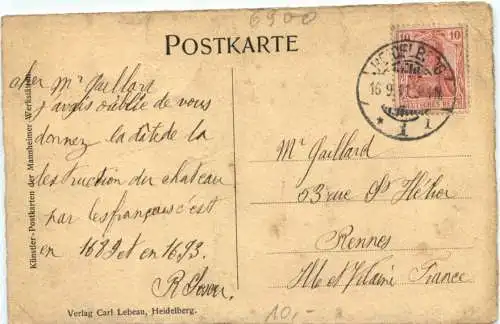 6900
POSTKARTE
cher Mr Gaillard
j'avais oublié de vous
donnez la date de la
destruction du chateau
par les français c'est
en 1689 et en 1693.
Künstler-Postkarten der Mannheimer Werkstätten
Verlag Carl Lebeau, Heidelberg.
10
10
DEUTSCHES REICH
HEIDELBERG
16.9.
* 1 1
Mr Gaillard
53 rue St Hélier
Rennes
Ille et Vilaine France
10,-